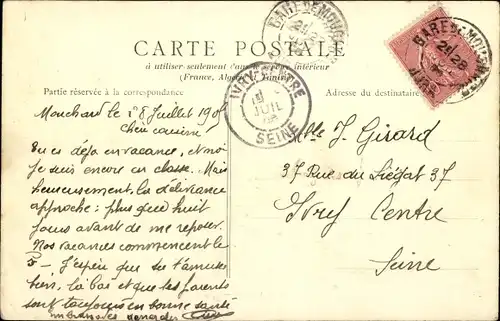 CARTE POSTALE
à utiliser seulement dans le service intérieur
(France, Algérie et Tunisie)
Partie réservée à la correspondance
Adresse du destinataire
GARE DE MOUCHARD
GARE DE MOUCHARD
JURA
IVRY CENTRE
JUIL
SEINE
Mouchard le 18 Juillet 1905
Chère cousine
Tu es déja en vacance, et moi
je suis encore en classe. Mais
heureusement la délivrance
approche: plus que huit
jours avant de me reposer.
Nos vacances commencent le
J'espère que tu t'amuses
bien, là bas et que tes parents
sont toujours en bonne santé
Mlle J. Girard
37 Rue du Liégat 37
Ivry Centre
Seine